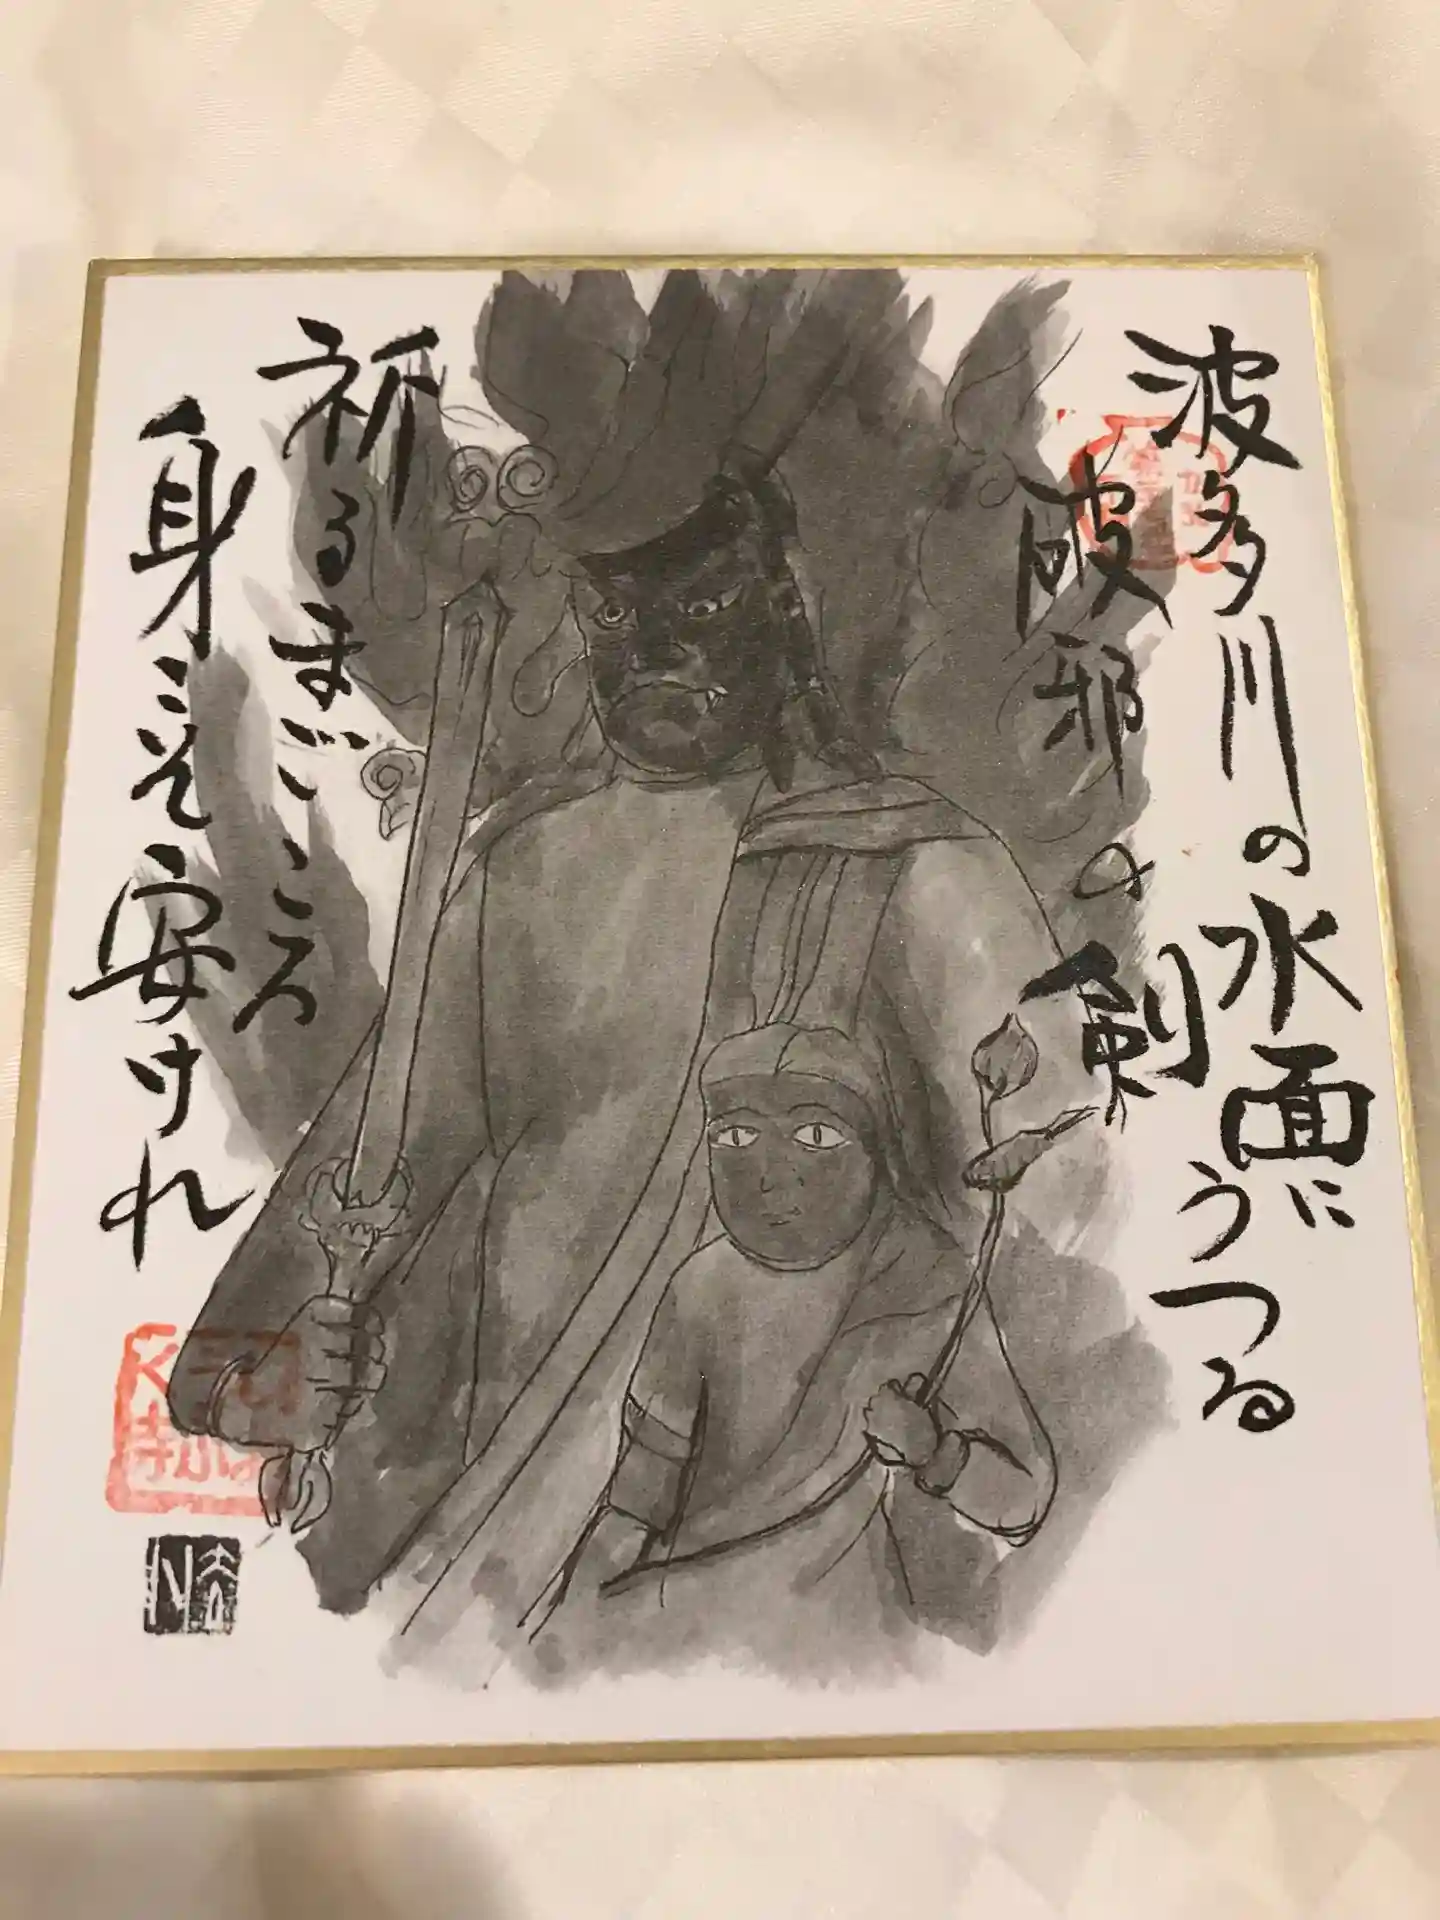 波多川の水面にうつる
破邪の剣
祈るまごころ
身こそ安けれ